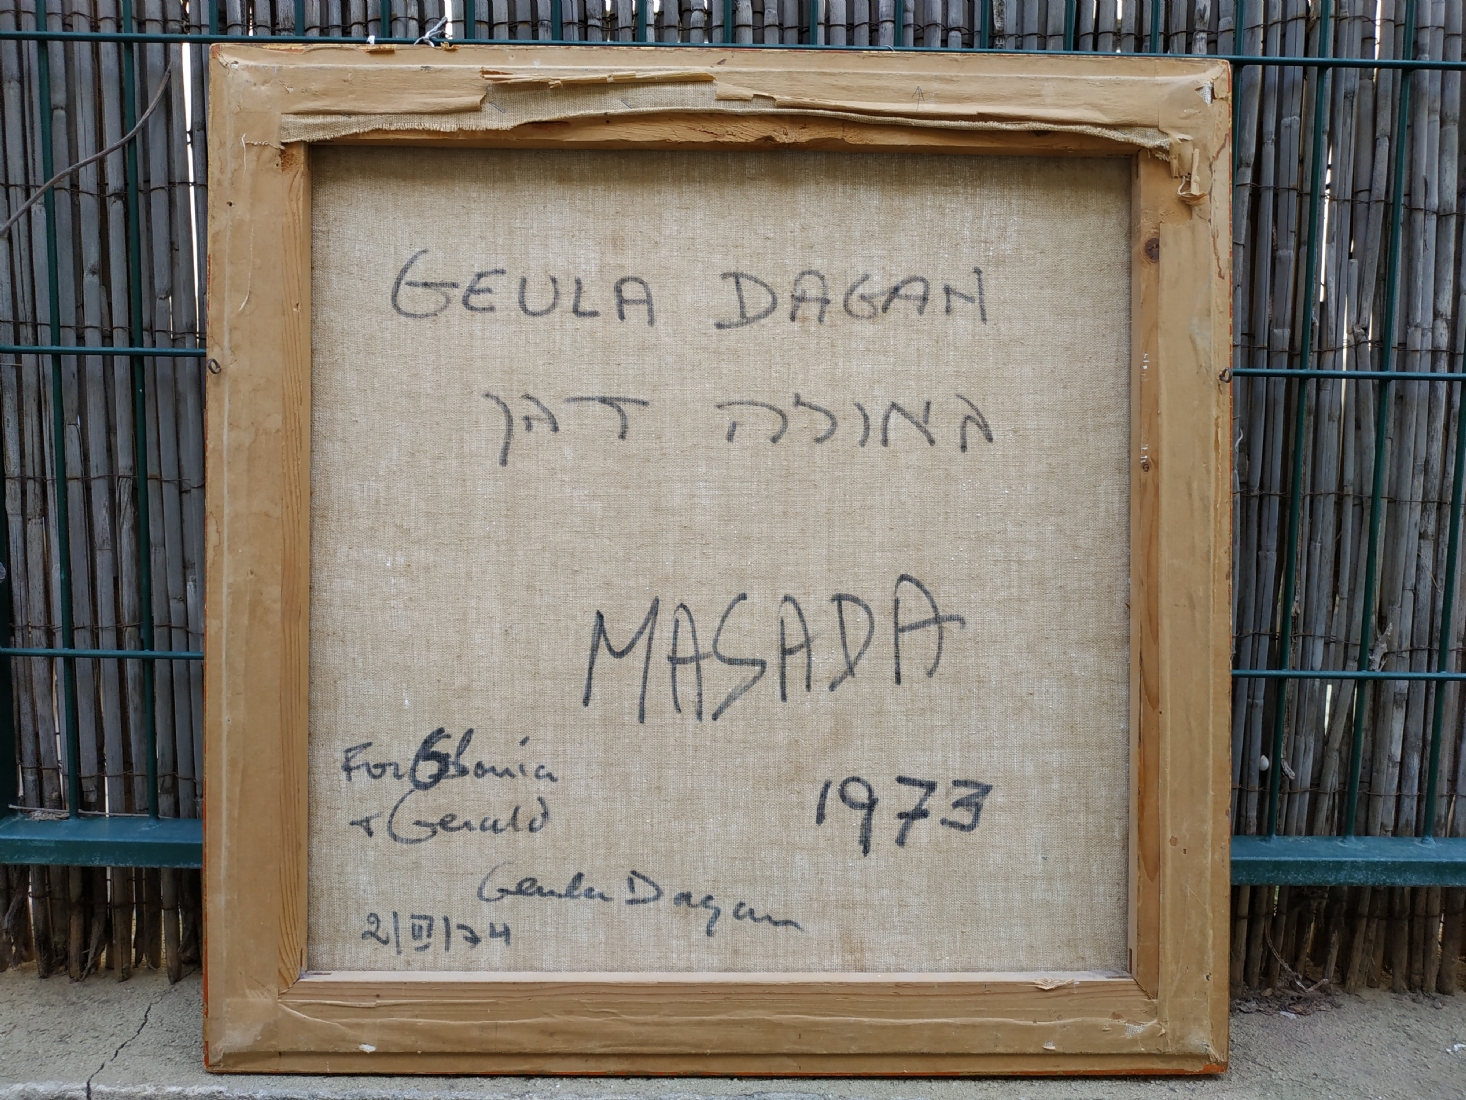 GEULA DAGAN
גאולה דגן
MASADA
For Sonia
+ Gerald
1973
Geula Dagan
2/III/74